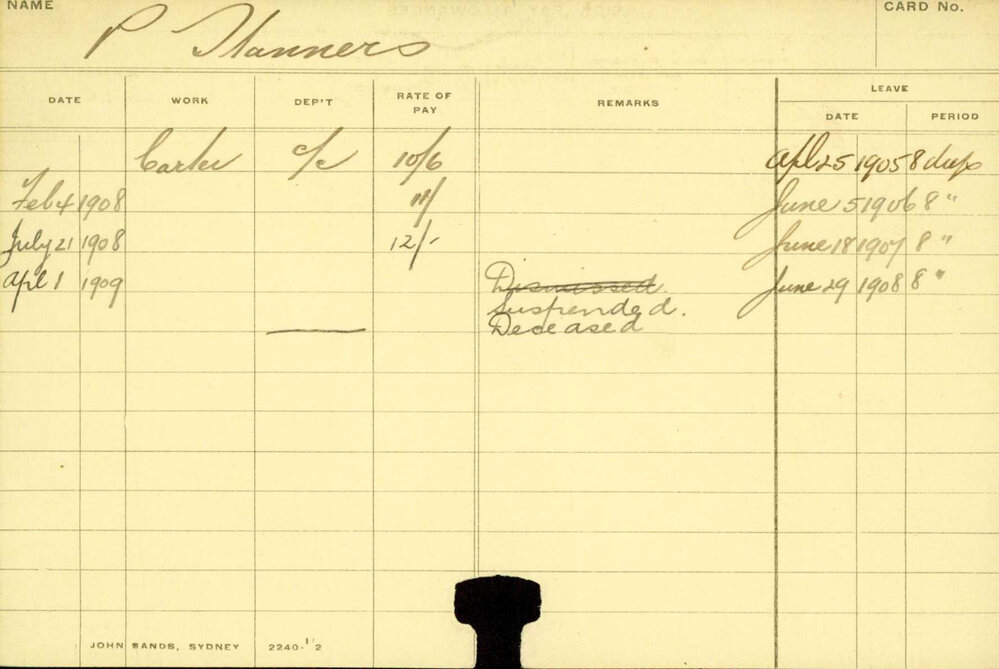 NAME CARD No.
P Manners
DATE WORK DEP'T RATE OF PAY REMARKS LEAVE
DATE PERIOD
Carter c/c 10/6 Apl 25 1905 8 days
Feb 4 1908 11/ June 5 1906 8 "
July 21 1908 12/- June 18 1907 8 "
Apl 1 1909 Dismissed June 29 1908 8 "
Suspended.
Deceased
JOHN SANDS, SYDNEY 2240-